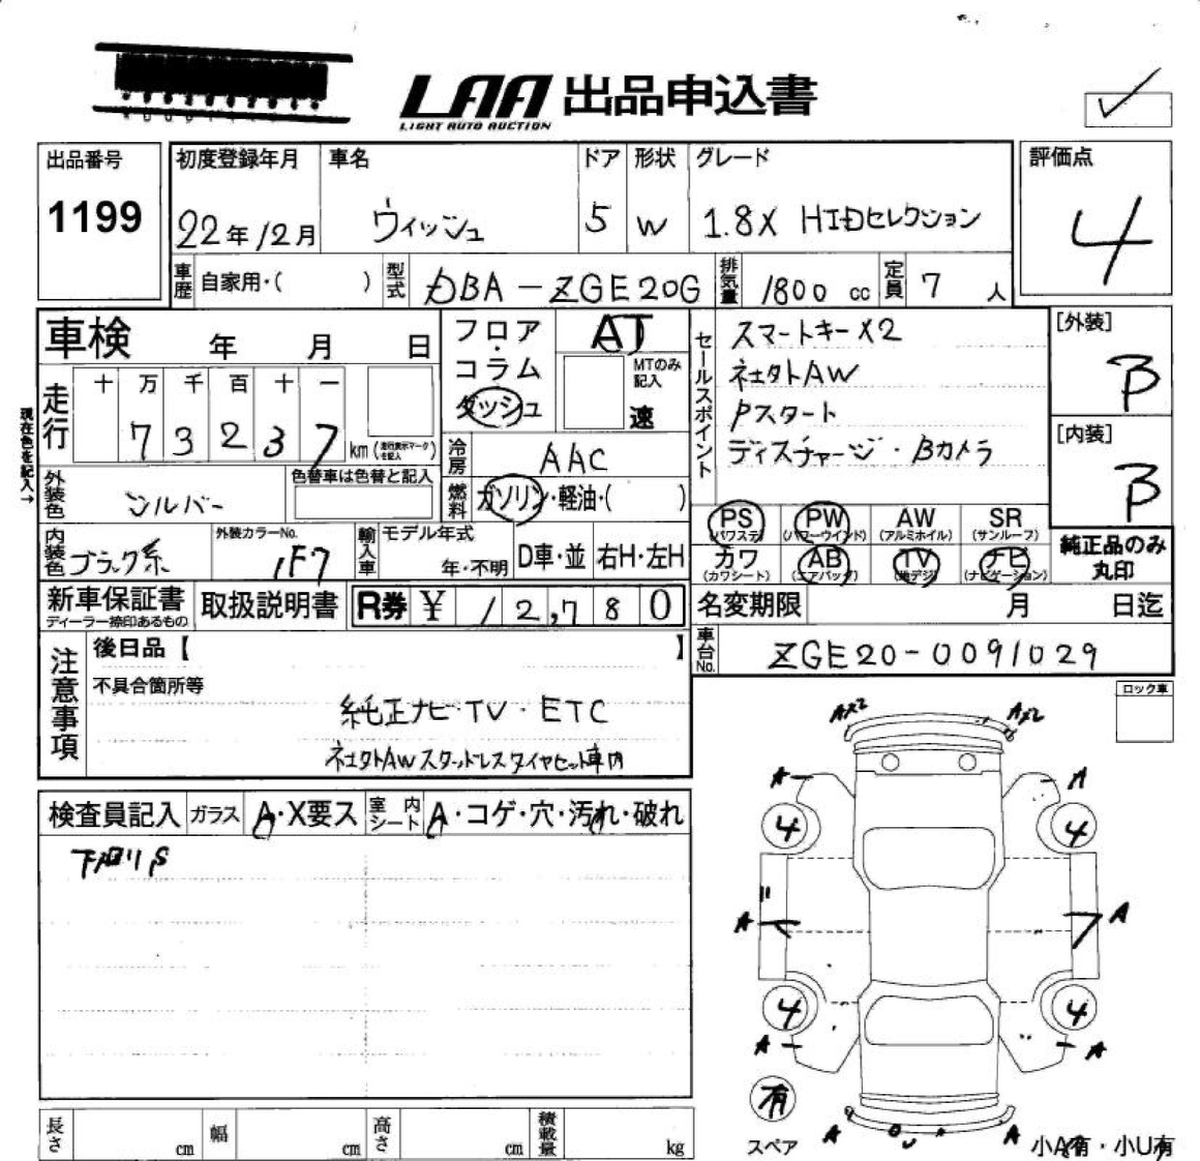 LAA 出品申込書
LIGHT AUTO AUCTION
出品番号
1199
初度登録年月
22年12月
車名
ウィッシュ
ドア
5
形状
W
グレード
1.8X HIDセレクション
評価点
4
車歴 自家用・( )
型式 DBA-ZGE20G
排気量 1800 cc
定員 7 人
車検 年 月 日
現在色を記入→
走行
十 万 千 百 十 一
7 3 2 3 7 km (走行表示マークを記入)
フロア・コラム
ダッシュ
AT
MTのみ記入
速
冷房 AAC
燃料 ガソリン・軽油・( )
セールスポイント
スマートキーX2
ネエタトAW
Pスタート
ディスチャージ・Bカメラ
[外装]
B
[内装]
B
外装色 シルバー
色替車は色替と記入
内装色 ブラック系
外装カラーNo.
1F7
輸入車
モデル年式
年・不明
D車・並
右H・左H
PS (パワステ) PW (パワーウインド) AW (アルミホイル) SR (サンルーフ)
カワ (カワシート) AB (エアバッグ) TV (地デジ) ナビ (ナビゲーション)
純正品のみ丸印
新車保証書
ディーラー捺印あるもの
取扱説明書
R券 ¥ 12,780
名変期限 月 日迄
車台No. ZGE20-0091029
注意事項
後日品【 】
不具合箇所等
純正ナビ・TV・ETC
ネエタトAWスタッドレスタイヤセット車内
ロック車
検査員記入 ガラス A・X要ス 室内シート A・コゲ・穴・汚れ・破れ
下廻りS
AX2 AX2
A A
4 4
A A
4 4
A A
有
スペア
A A
小A有・小U有
長さ cm 幅 cm 高さ cm 積載量 kg